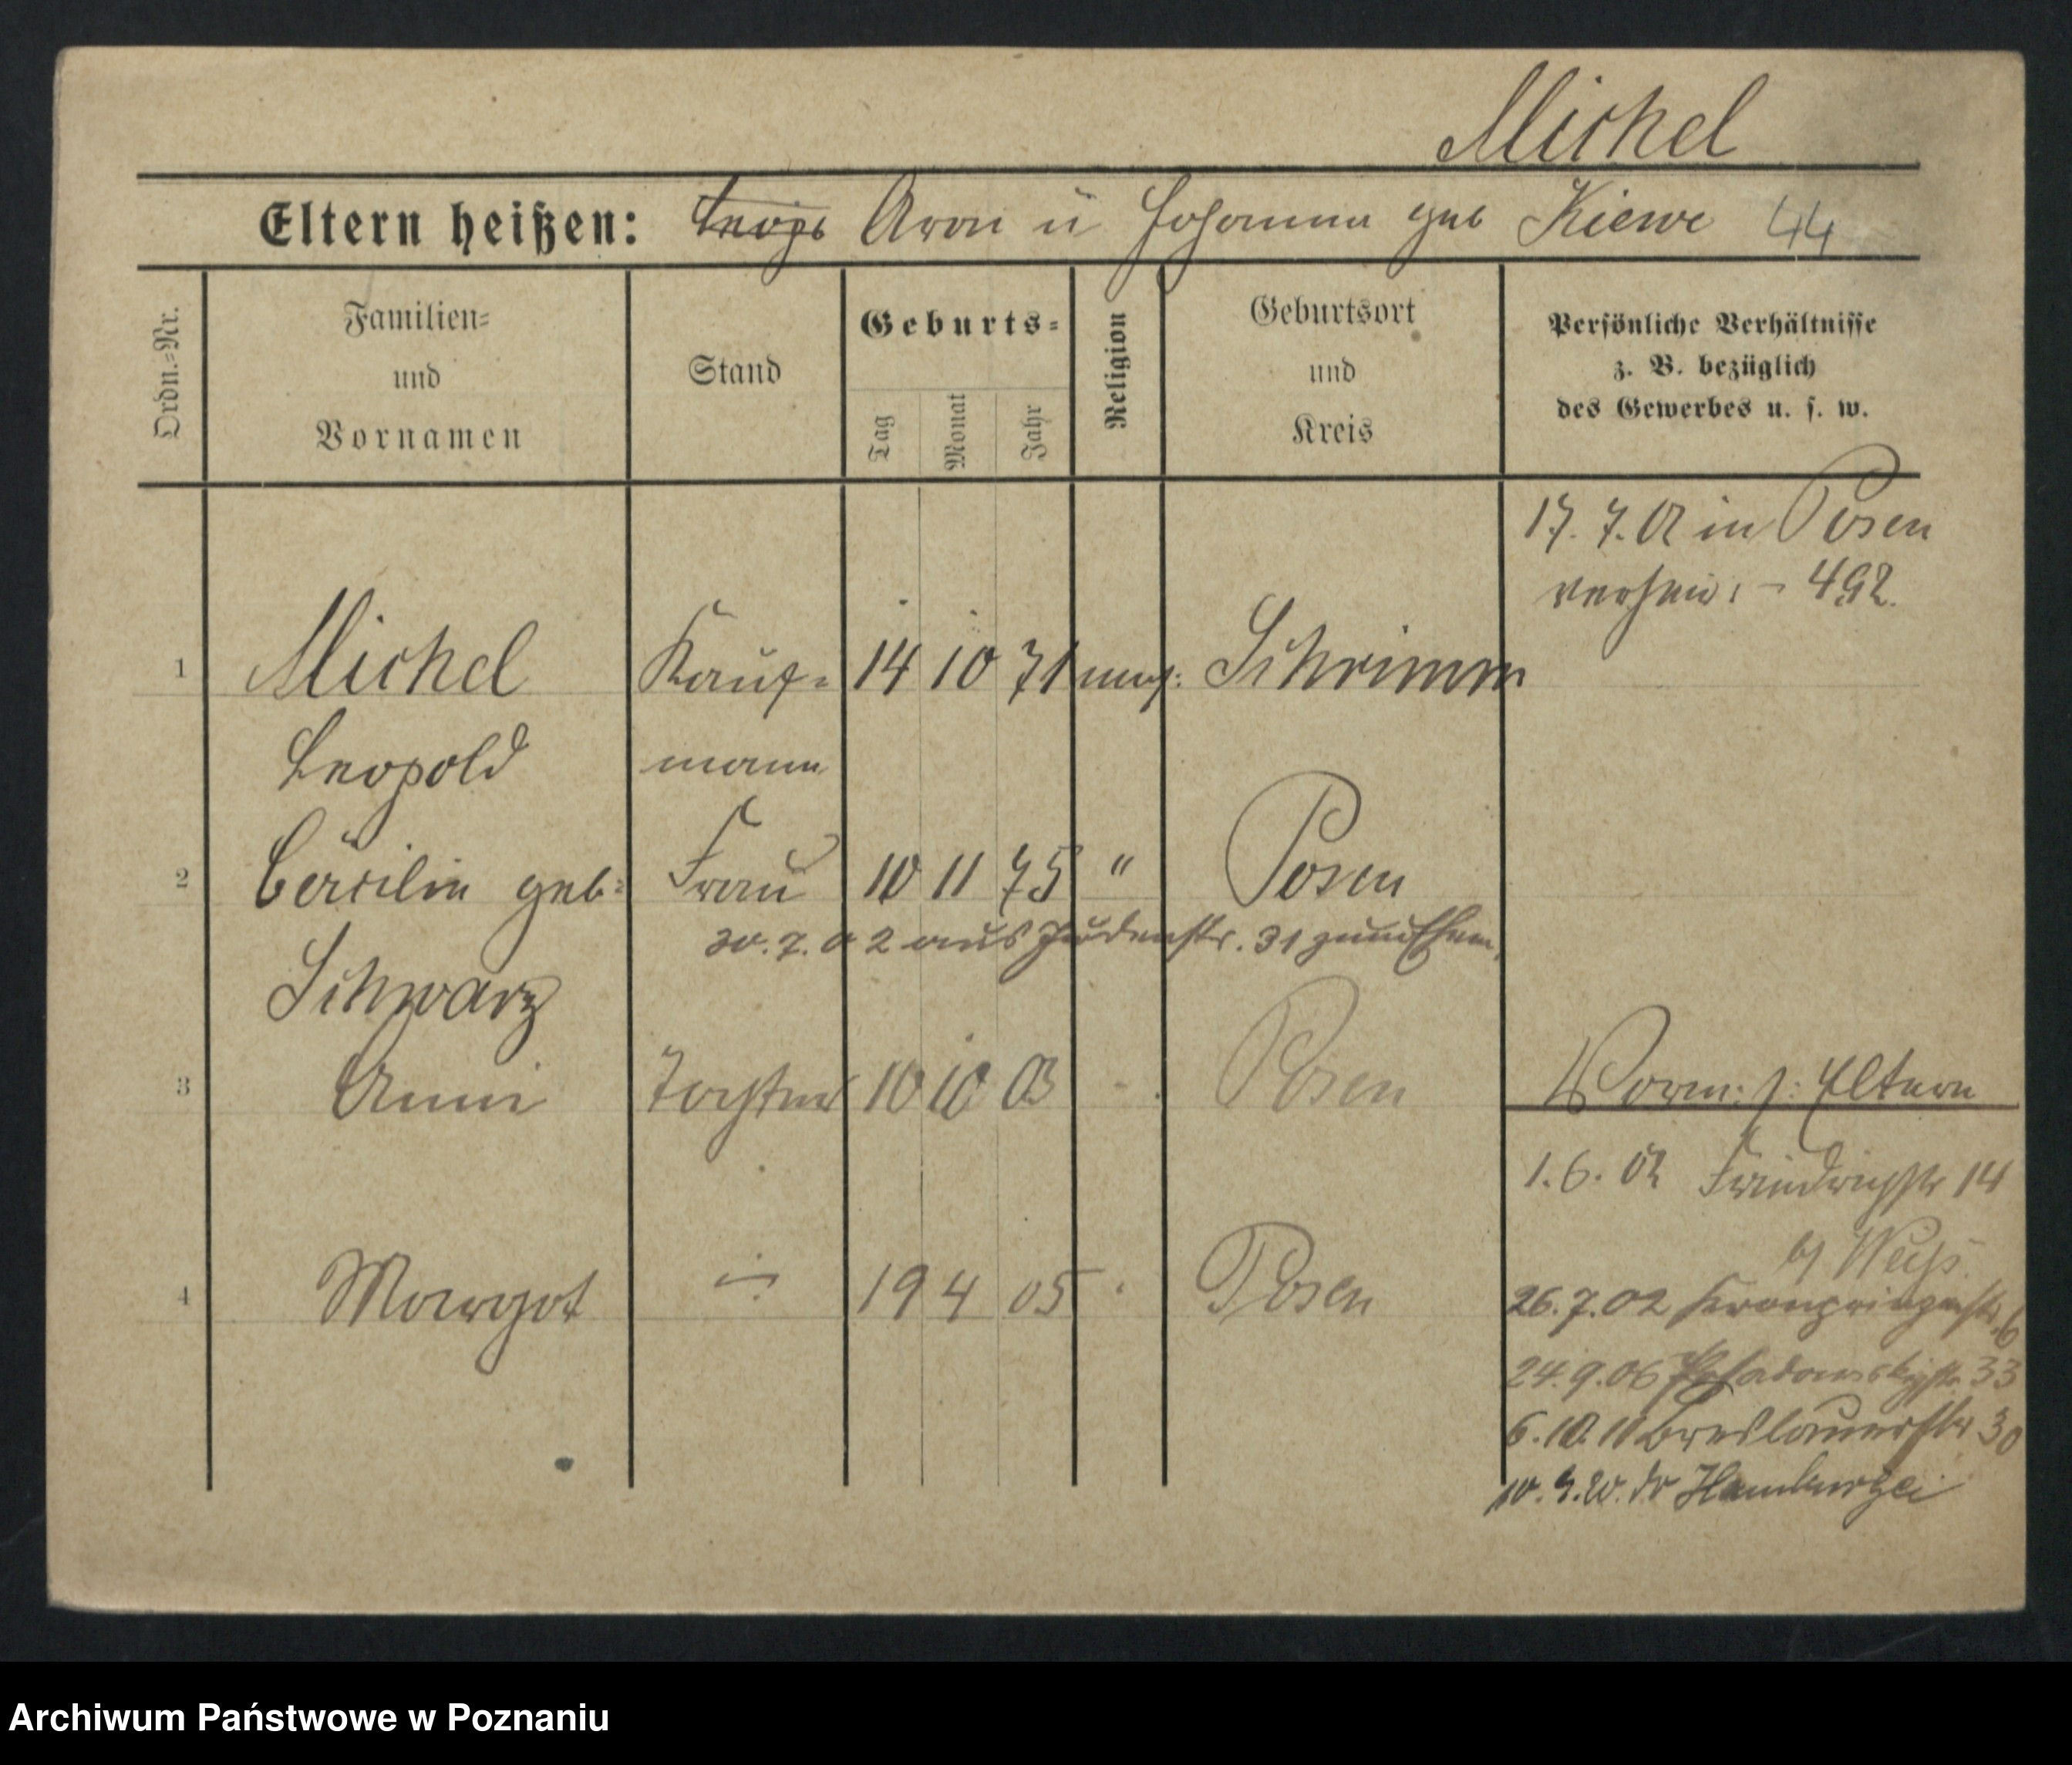 Michel
Eltern heißen: Aron u Johanna geb Kiewe 44
Ordn.=Nr.
Familien=
und
Vornamen
Stand
Geburts=
Tag
Monat
Jahr
Religion
Geburtsort
und
Kreis
Persönliche Verhältnisse
z. B. bezüglich
des Gewerbes u. s. w.
17. 7. 02 in Posen
verheir. - 492.
1 Michel Kauf= 14 10 71 mos: Schrimm
Leopold mann
2 Cäcilie geb= Frau 10 11 75 " Posen
30. 7. 02 aus Judenstr. 31 zum Ehem.
Schwarz
3 Anni Tochter 10 10 03 Posen
Worm: s: Eltern
1. 6. 02 Friedrichstr 14
4 Margot 19 4 05 Posen
26. 7. 02 Kronprinzenstr. 6
24. 9. 06 Posadowskystr 33
6. 10. 11 Breslauerstr 30
Archiwum Państwowe w Poznaniu